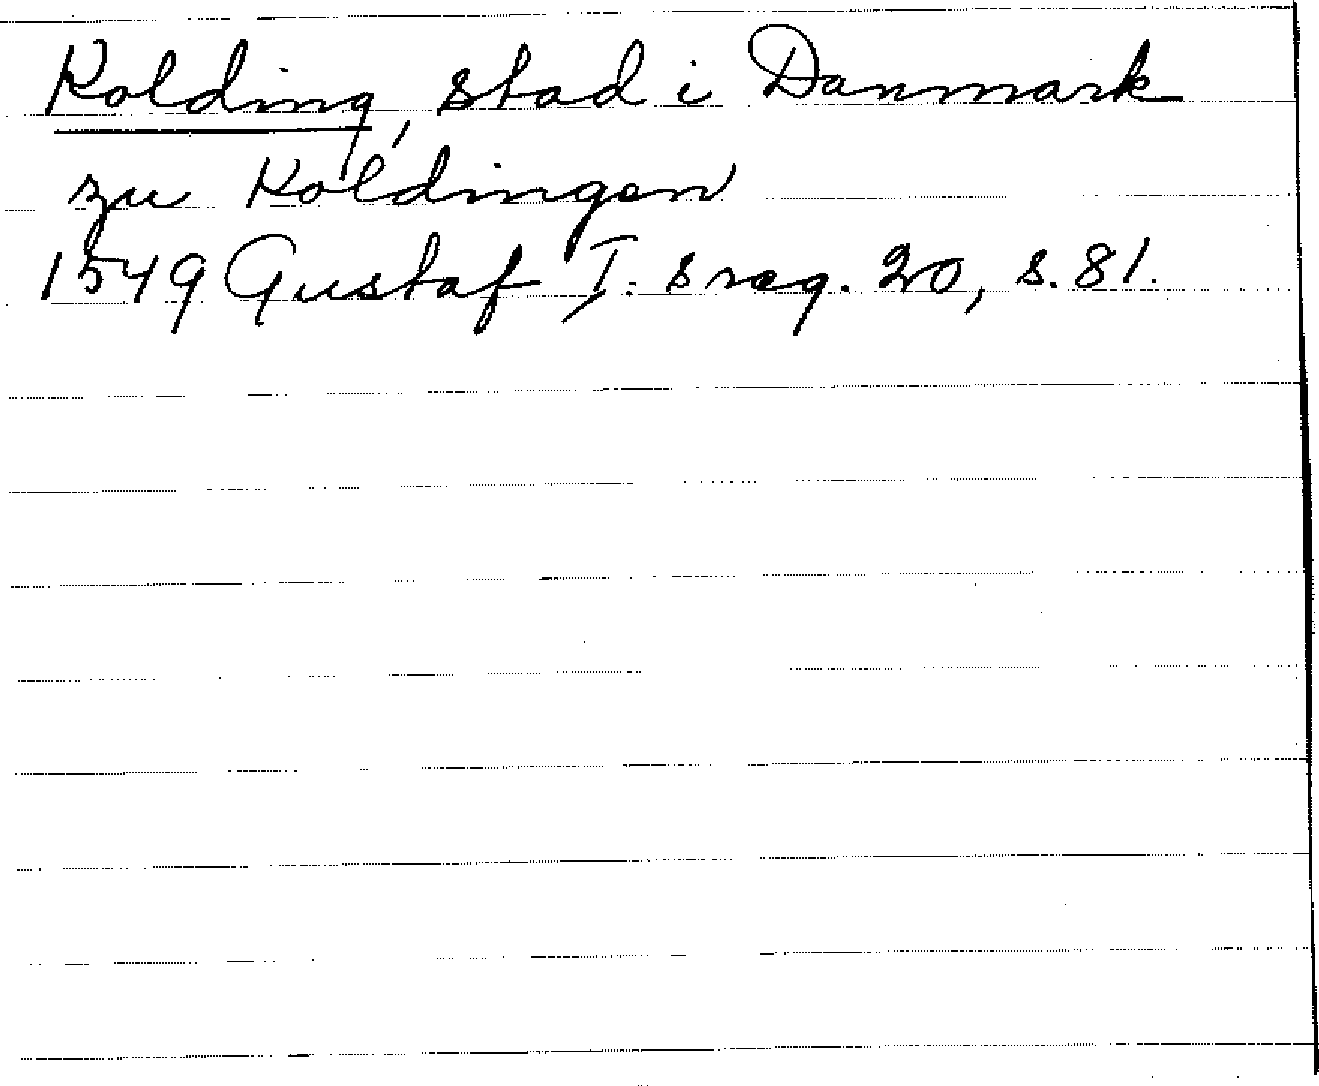 Kolding, stad i Danmark
zu Koldingen
1549 Gustaf I:s reg. 20, s. 81.